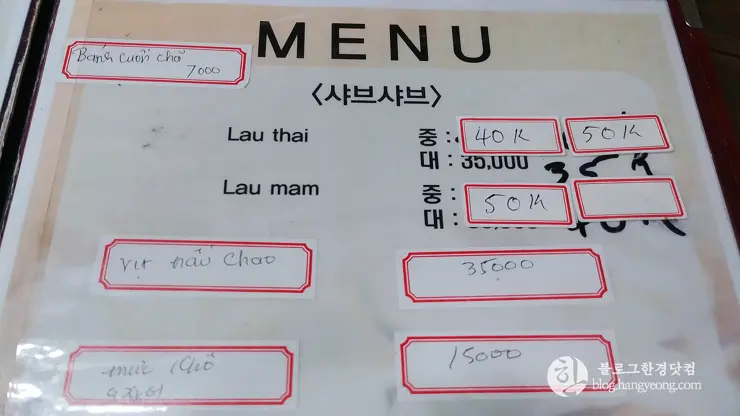 MENU
Bánh cuốn chả
7000
<샤브샤브>
Lau thai 중: 40K 50K
대: 35,000 35K
Lau mam 중: 50K
대:
Vịt nấu chao 35000
mực khô 15000
오징어
블로그한경닷컴
blog.hangyeong.com